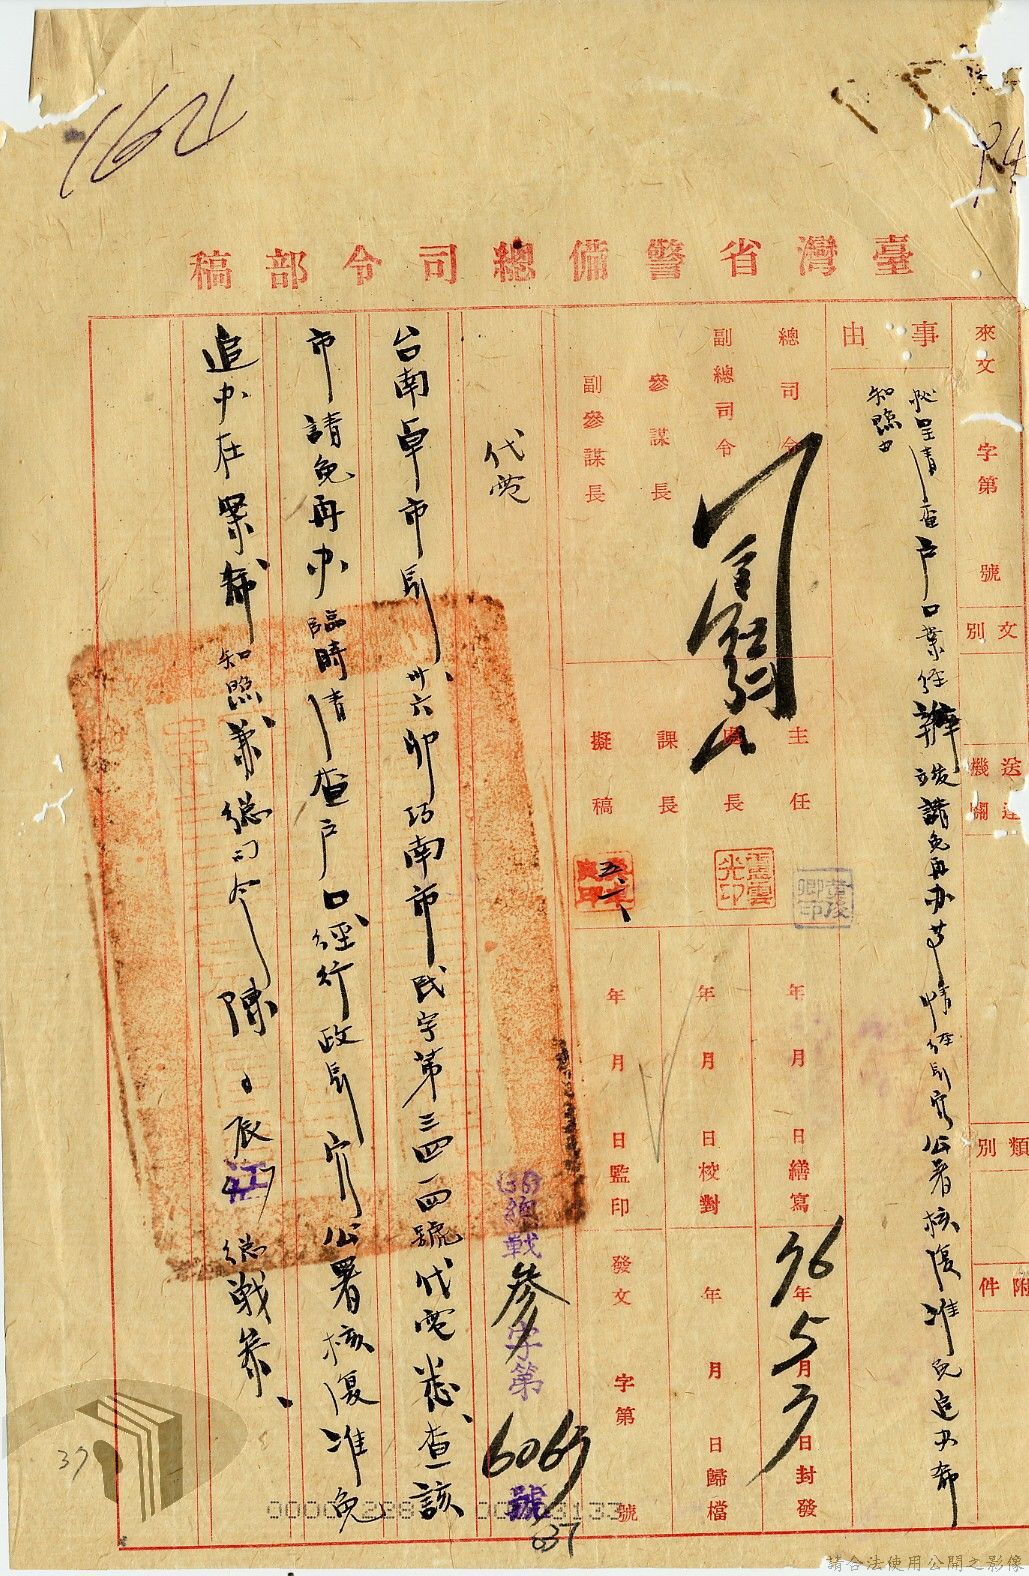 1621
94
臺灣省警備總司令部稿
來文 字第 號
文別
送達機關
類別
附件
事由
呈清查户口業經辦竣請免再办等情經長官公署核復准免追办希
知照由
總司令
副總司令
參謀長
副參謀長
主任
處長
課長
擬稿
五、六、
年 月 日繕寫
年 月 日校對
年 月 日監印
36年5月 日封發
年 月 日歸檔
發文 字第 號
代電
總戰參字第6065號
台南卓市長、卅六卯巧南市民字第三四一四號代電悉、查該
市請免再办臨時清查户口、經行政長官公署核復准免
追办在案、希知照、兼總司令陳 辰江 總戰參、
037
37
請合法使用公開之影像